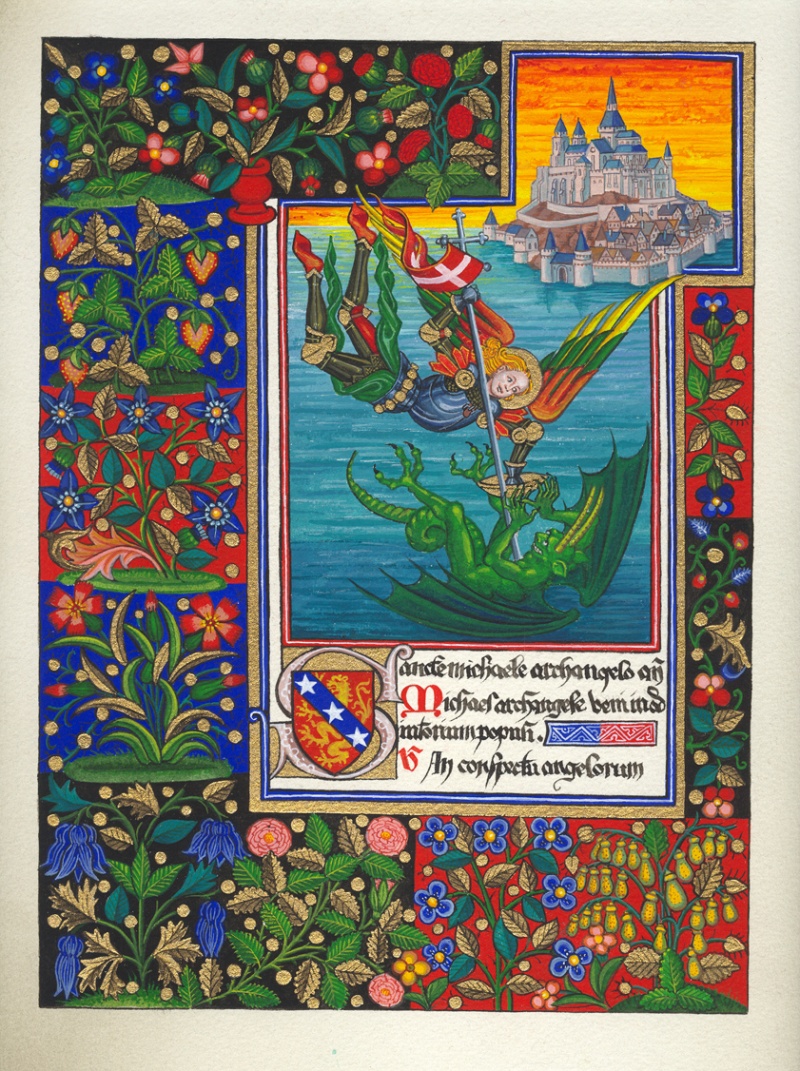 Sancte michaele archangelo añ
Michael archangele veni in ad
iutorium populi.
℣ In conspectu angelorum